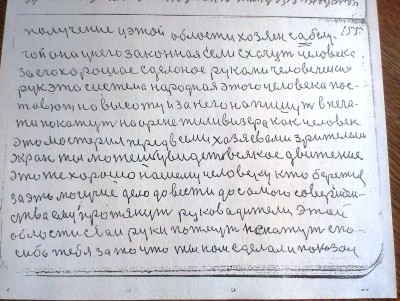 получение у этой области хозяен собы- 155.
той она у него законная если скажут человека
за его хорошае сделоное руками человеческими
рук это система народная этого человека пос-
тавют на высоту и за него напишут в печа-
ти покажут на экране тиливизера как человек
это мастерил перед всеми хозяевами зрителями
экран ты можеш увидеть всякое движение
это же хорошо нашему человеку кто берется
за эть могучие дело довести до самого совершен-
ства ему протянут руководители этой
области сваи руки пожмут скажут спа-
сибо тебя за то что ты нам сделал и показал